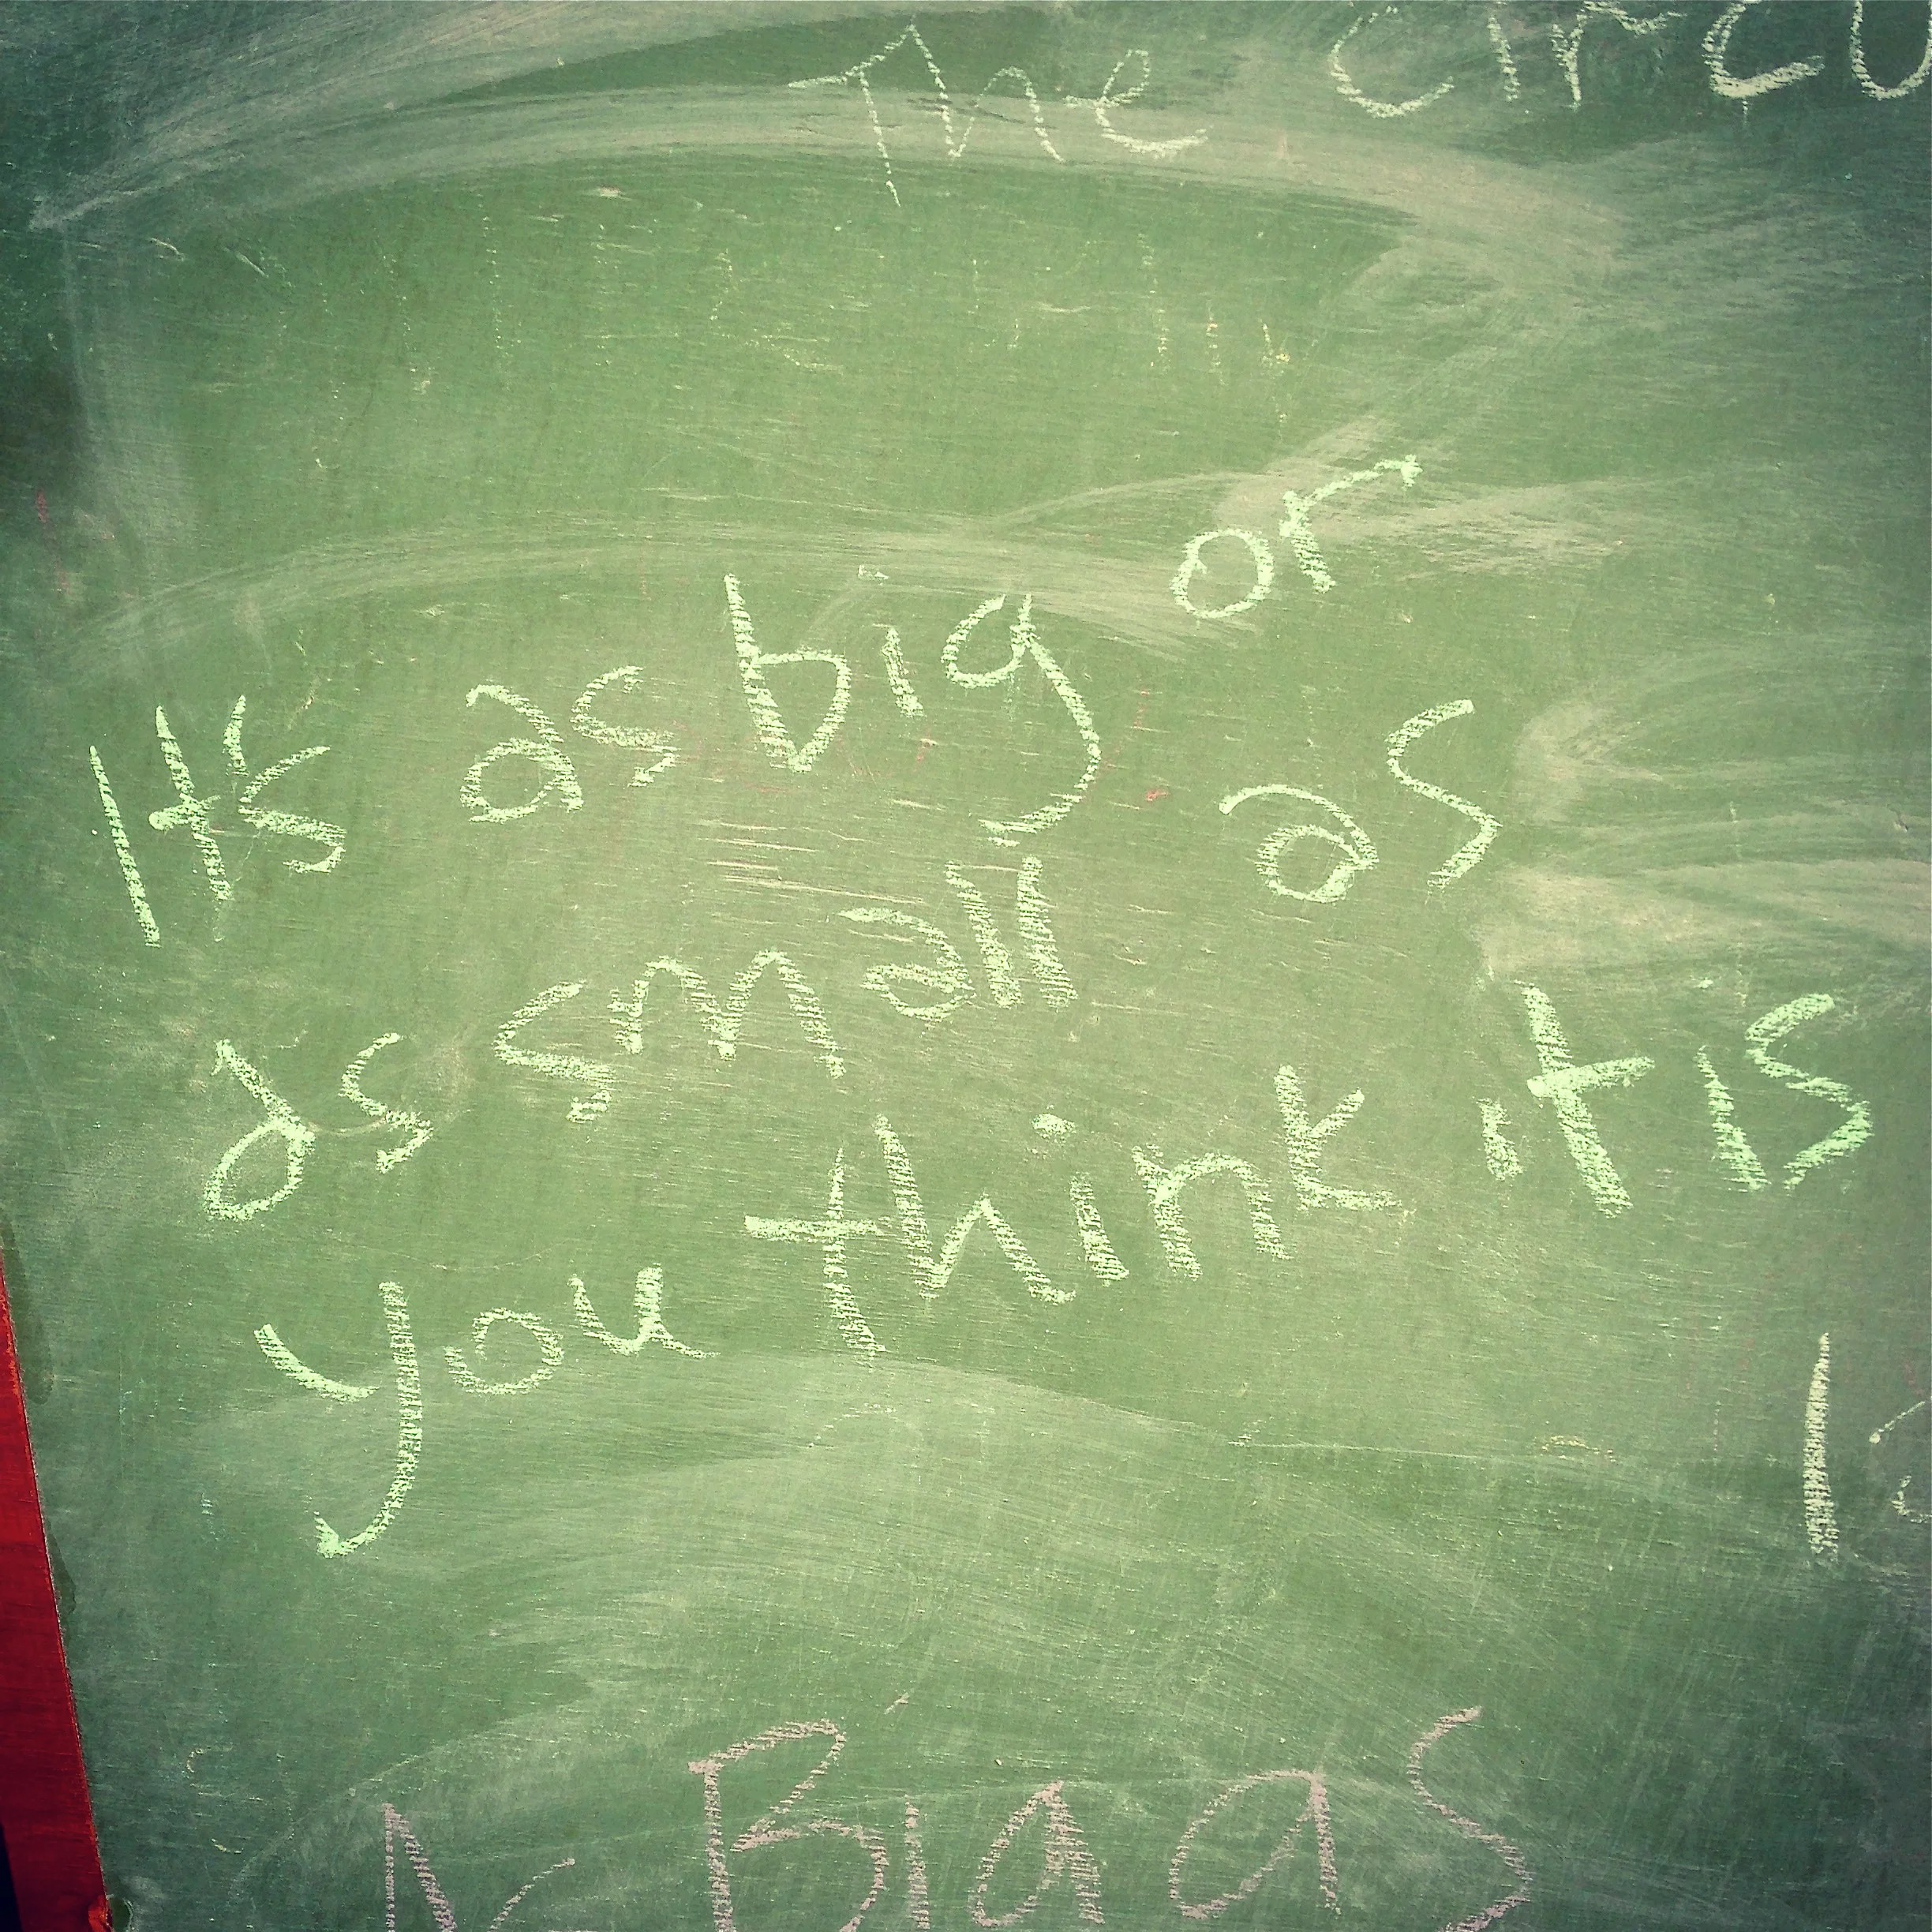 The circu
Its as big or
as small as
you think it is
As Big as